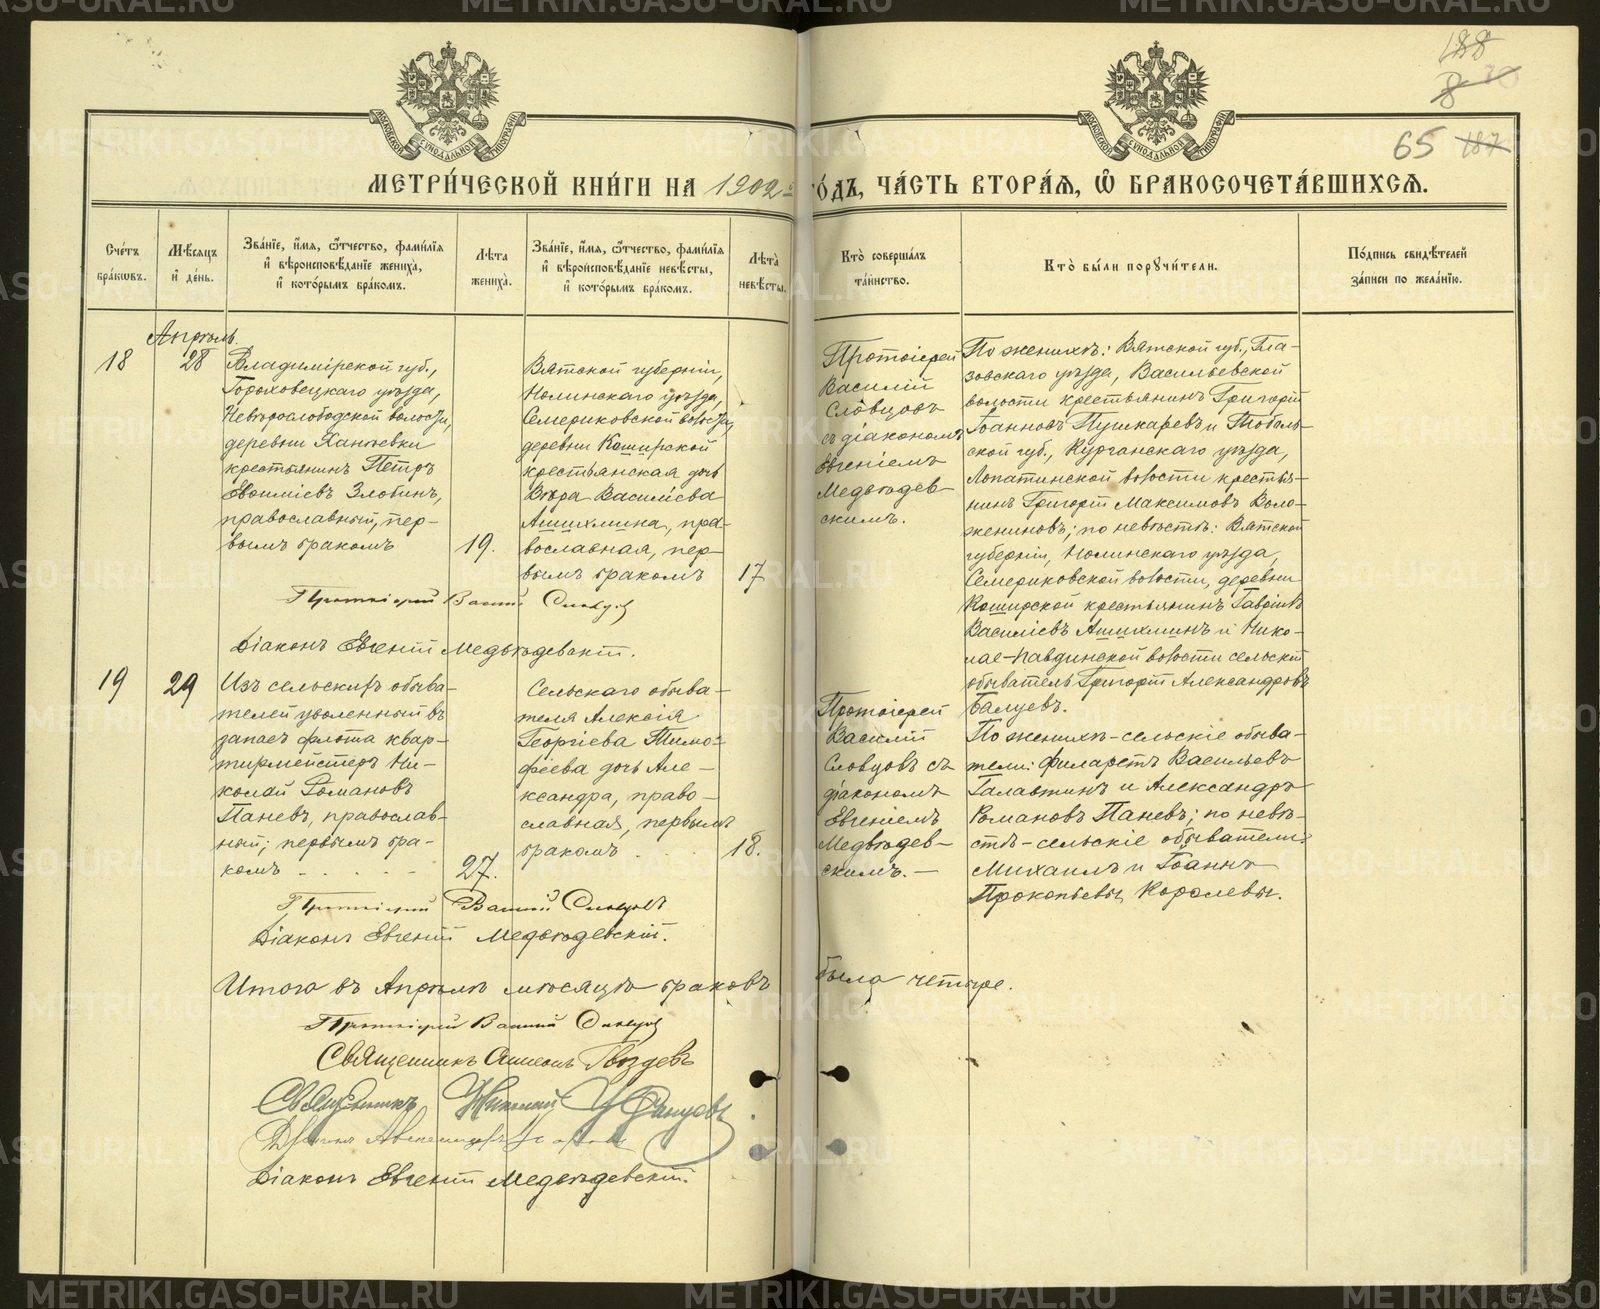 188
8
65 187
МОСКОВСКОЙ СѴНОДАЛЬНОЙ ТИПОГРАФІИ
МОСКОВСКОЙ СѴНОДАЛЬНОЙ ТИПОГРАФІИ
МЕТРИ́ЧЕСКОЙ КНИ́ГИ НА 1902 го́дъ, ЧА́СТЬ ВТОРА́Я, Ѡ БРАКОСОЧЕТА́ВШИХСЯ.
Сче́тъ бра́кωвъ.
Мѣ́сяцъ и҆ де́нь.
Зва́нїе, и҆́мя, ѻ҆́тчество, фами́лїя и҆ вѣроисповѣ́данїе жениха̀, и҆ кото́рымъ бра́комъ.
Лѣ́та жениха̀.
Зва́нїе, и҆́мя, ѻ҆́тчество, фами́лїя и҆ вѣроисповѣ́данїе невѣ́сты, и҆ кото́рымъ бра́комъ.
Лѣ́та невѣ́сты.
Кто̀ соверша́лъ та́инство.
Кто̀ бы́ли порꙋчи́тели.
По́дпись свидѣ́телей за́писи по жела́нїю.
Апрѣль.
18
28
Владимірской губ.,
Гороховецкаго уѣзда,
Невѣрослободской волости,
деревни Хантѣевки
крестьянинъ Петръ
Евѳиміевъ Злобинъ,
православный, пер-
вымъ бракомъ
19.
Вятской губерніи,
Нолинскаго уѣзда,
Семериковской волости,
деревни Коширской
крестьянская дочь
Вѣра Василіева
Ашихмина, пра-
вославная, пер-
вымъ бракомъ
17
Протоіерей
Василій
Словцовъ
съ діакономъ
Евгеніемъ
Медвѣдев-
скимъ.
По женихѣ: Вятской губ., Гла-
зовскаго уѣзда, Васильевской
волости крестьянинъ Григорій
Іоанновъ Пушкаревъ и Тоболь-
ской губ., Курганскаго уѣзда,
Лопатинской волости крестья-
нинъ Григорій Максимовъ Воло-
жениновъ; по невѣстѣ: Вятской
губерніи, Нолинскаго уѣзда,
Семериковской волости, деревни
Коширской крестьянинъ Гавріилъ
Василіевъ Ашихминъ и Нико-
лае-Павдинской волости сельскій
обыватель Григорій Александровъ
Балуевъ.
Протоіерей Василій Словцовъ
Діаконъ Евгеній Медвѣдевскій.
19
29
Изъ сельскихъ обыва-
телей уволенный въ
запасъ флота квар-
тирмейстеръ Ни-
колай Романовъ
Паневъ, православ-
ный; первымъ бра-
комъ
27.
Сельскаго обыва-
теля Алексія
Георгіева Тимо-
феева дочь Але-
ксандра, право-
славная, первымъ
бракомъ
18.
Протоіерей
Василій
Словцовъ съ
діакономъ
Евгеніемъ
Медвѣдев-
скимъ. —
По женихѣ - сельскіе обыва-
тели: Филаретъ Васильевъ
Галактинъ и Александръ
Романовъ Паневъ; по невѣ-
стѣ - сельскіе обыватели:
Михаилъ и Іоаннъ
Прокопьевы Королевы.
Протоіерей Василій Словцовъ
Діаконъ Евгеній Медвѣдевскій.
Итого въ Апрѣлѣ мѣсяцѣ браковъ было четыре.
Протоіерей Василій Словцовъ
Священникъ Гвоздевъ
Священникъ Николай
Діаконъ Евгеній Медвѣдевскій.
METRIKI.GASO-URAL.RU